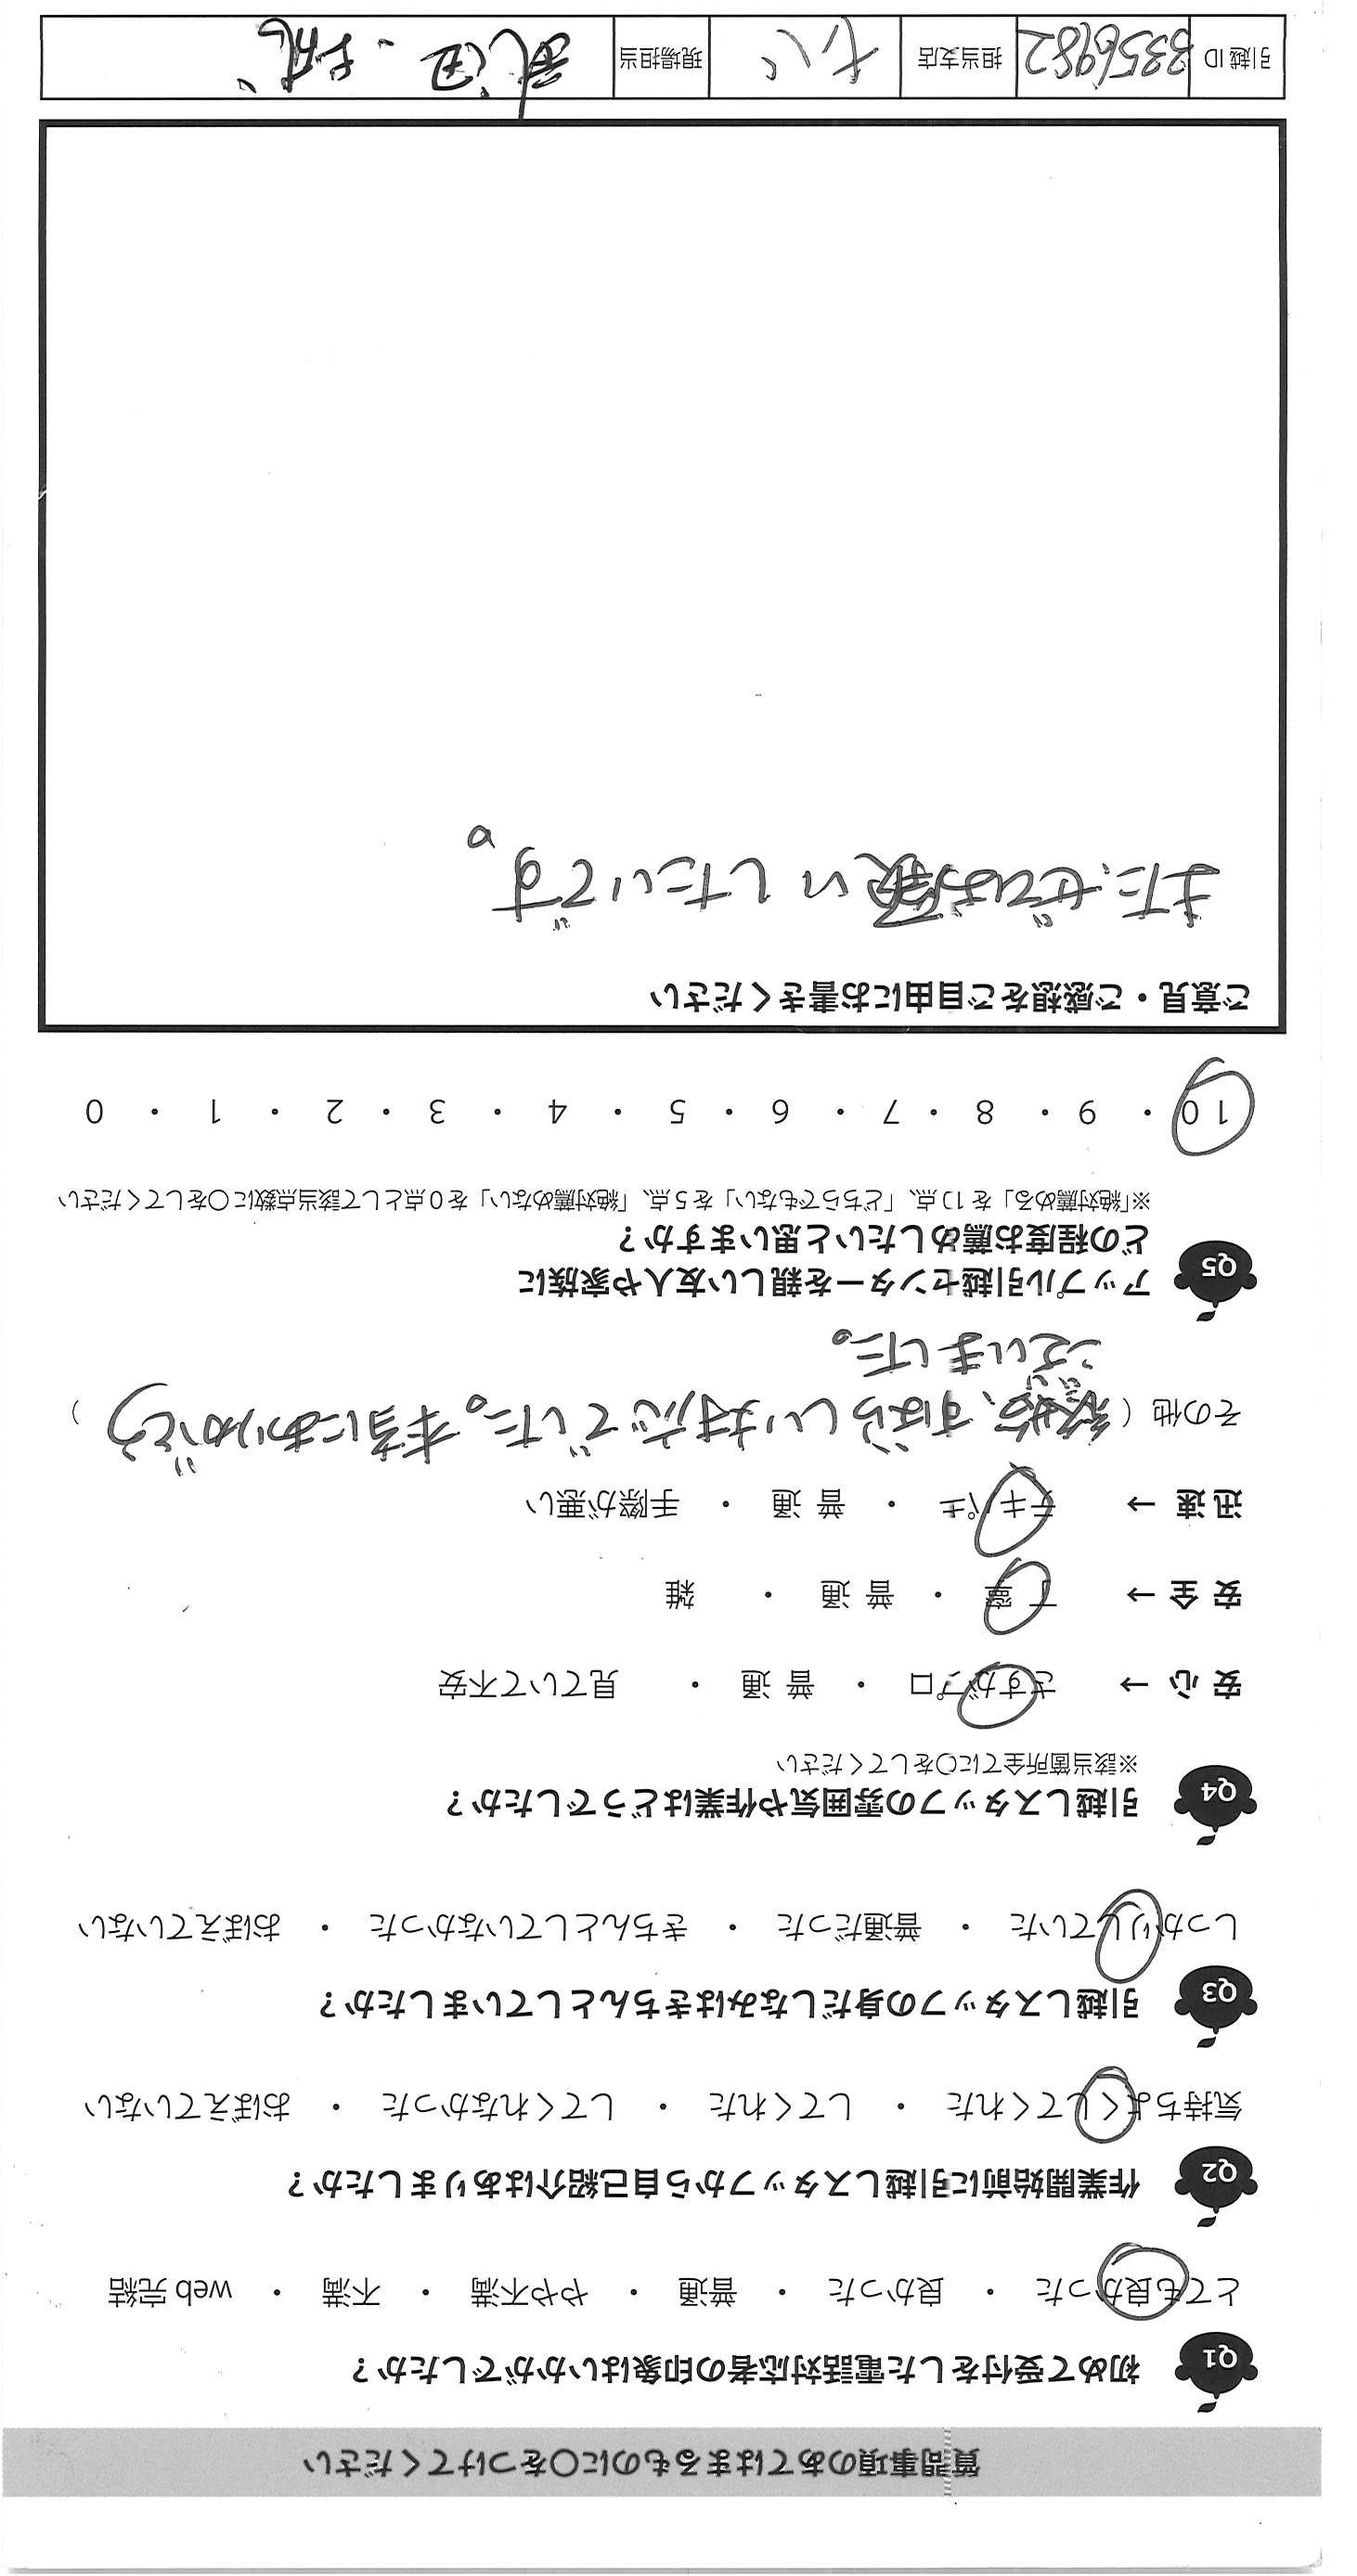 質問事項のあてはまるものに〇をつけてください
Q1 初めて受付をした電話対応者の印象はいかがでしたか？
とても良かった ・ 良かった ・ 普通 ・ やや不満 ・ 不満 ・ web 完結
Q2 作業開始前に引越しスタッフから自己紹介はありましたか？
気持ちよくしてくれた ・ してくれた ・ してくれなかった ・ おぼえていない
Q3 引越しスタッフの身だしなみはきちんとしていましたか？
しっかりしていた ・ 普通だった ・ きちんとしていなかった ・ おぼえていない
Q4 引越しスタッフの雰囲気や作業はどうでしたか？
※該当箇所全てに〇をしてください
安 心 → さすがプロ ・ 普 通 ・ 見ていて不安
安 全 → 丁 寧 ・ 普 通 ・ 雑
迅 速 → テキパキ ・ 普 通 ・ 手際が悪い
その他（ 終始、すばらしい対応でした。本当にありがとう ）
ございました。
Q5 アップル引越センターを親しい友人や家族に
どの程度お薦めしたいと思いますか？
※「絶対薦める」を10点、「どちらでもない」を5点、「絶対薦めない」を0点として該当点数に〇をしてください
10 ・ 9 ・ 8 ・ 7 ・ 6 ・ 5 ・ 4 ・ 3 ・ 2 ・ 1 ・ 0
ご意見・ご感想をご自由にお書きください
また、ぜひお願いしたいです。
引越 ID 3356982 担当支店 現場担当 武田・